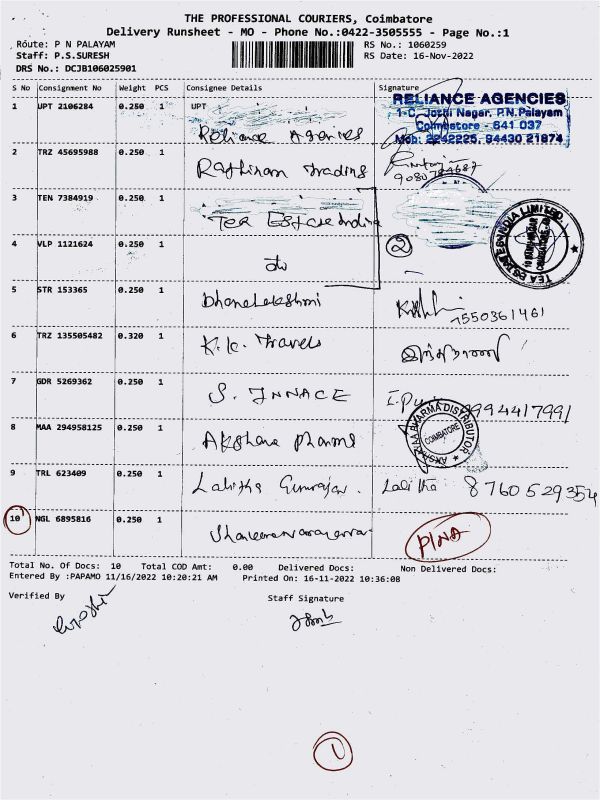 THE PROFESSIONAL COURIERS, Coimbatore
Delivery Runsheet - MO - Phone No.:0422-3505555 - Page No.:1
Route: P N PALAYAM
RS No.: 1060259
Staff: P.S.SURESH
RS Date: 16-Nov-2022
DRS No.: DCJB106025901
S No Consignment No Weight PCS Consignee Details Signature
1 UPT 2106284 0.250 1 UPT
Reliance Agencies
RELIANCE AGENCIES
1-C, Joshi Nagar, P.N.Palayam
Coimbatore - 641 037
Mob: 2242225, 94430 21874
2 TRZ 45695988 0.250 1
Trading
3 TEN 7384919 0.250 1
Tea Estate India
TEA ESTATES INDIA LIMITED
COIMBATORE
4 VLP 1121624 0.250 1
do
2
5 STR 153365 0.250 1
Dhanalakshmi
7550361461
6 TRZ 135505482 0.320 1
K.K. Travels
7 GDR 5269362 0.250 1
S. INNACE
9994417991
8 MAA 294958125 0.250 1
Akshara Pharma
AKSHARAA PHARMA DISTRIBUTOR
COIMBATORE
9 TRL 623409 0.250 1
Lalitha
Lalitha 8760529354
10 NGL 6895816 0.250 1
Total No. Of Docs: 10 Total COD Amt: 0.00 Delivered Docs: Non Delivered Docs:
Entered By :PAPAMO 11/16/2022 10:20:21 AM Printed On: 16-11-2022 10:36:08
Verified By
Staff Signature
1